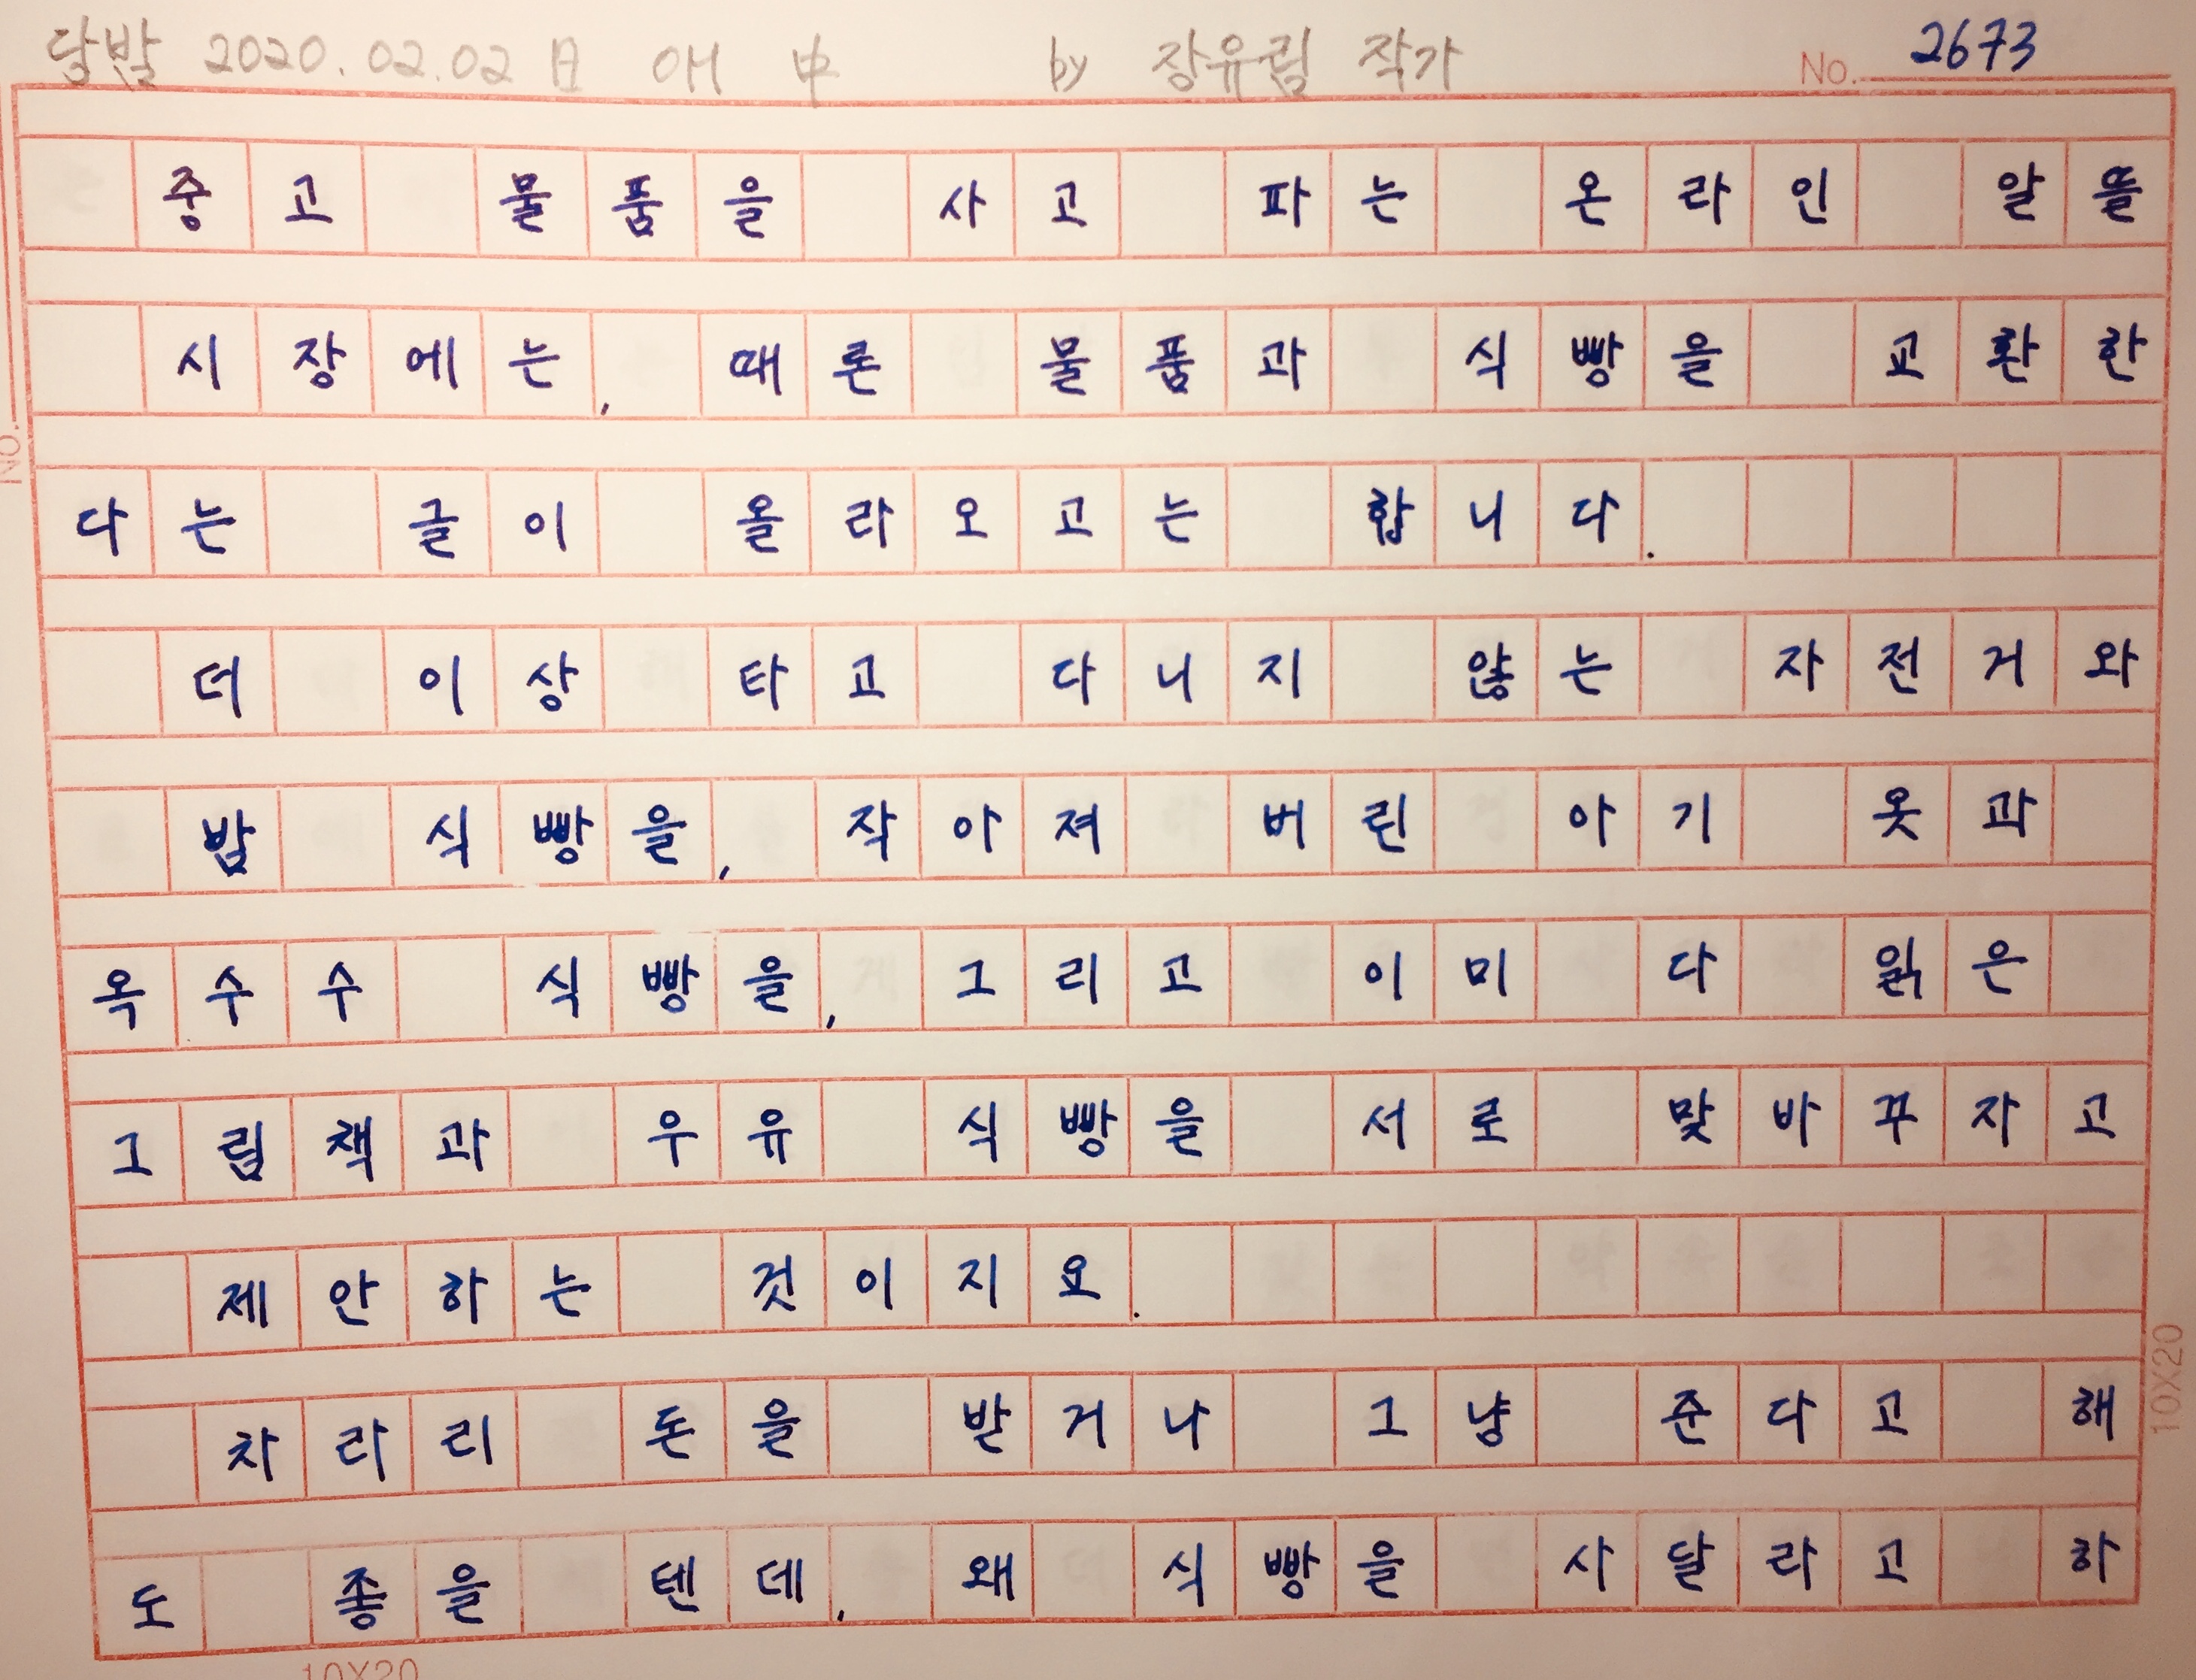 답밤 2020.02.02 日 애 申 by 장유림 작가 No. 2673
중고 물품을 사고 파는 온라인 알뜰
시장에는, 때론 물품과 식빵을 교환한
다는 글이 올라오고는 합니다.
더 이상 타고 다니지 않는 자전거와
밤 식빵을, 작아져 버린 아기 옷과
옥수수 식빵을, 그리고 이미 다 읽은
그림책과 우유 식빵을 서로 맞바꾸자고
제안하는 것이지요.
차라리 돈을 받거나 그냥 준다고 해
도 좋을 텐데, 왜 식빵을 사달라고 하
10X20
10X20
No.